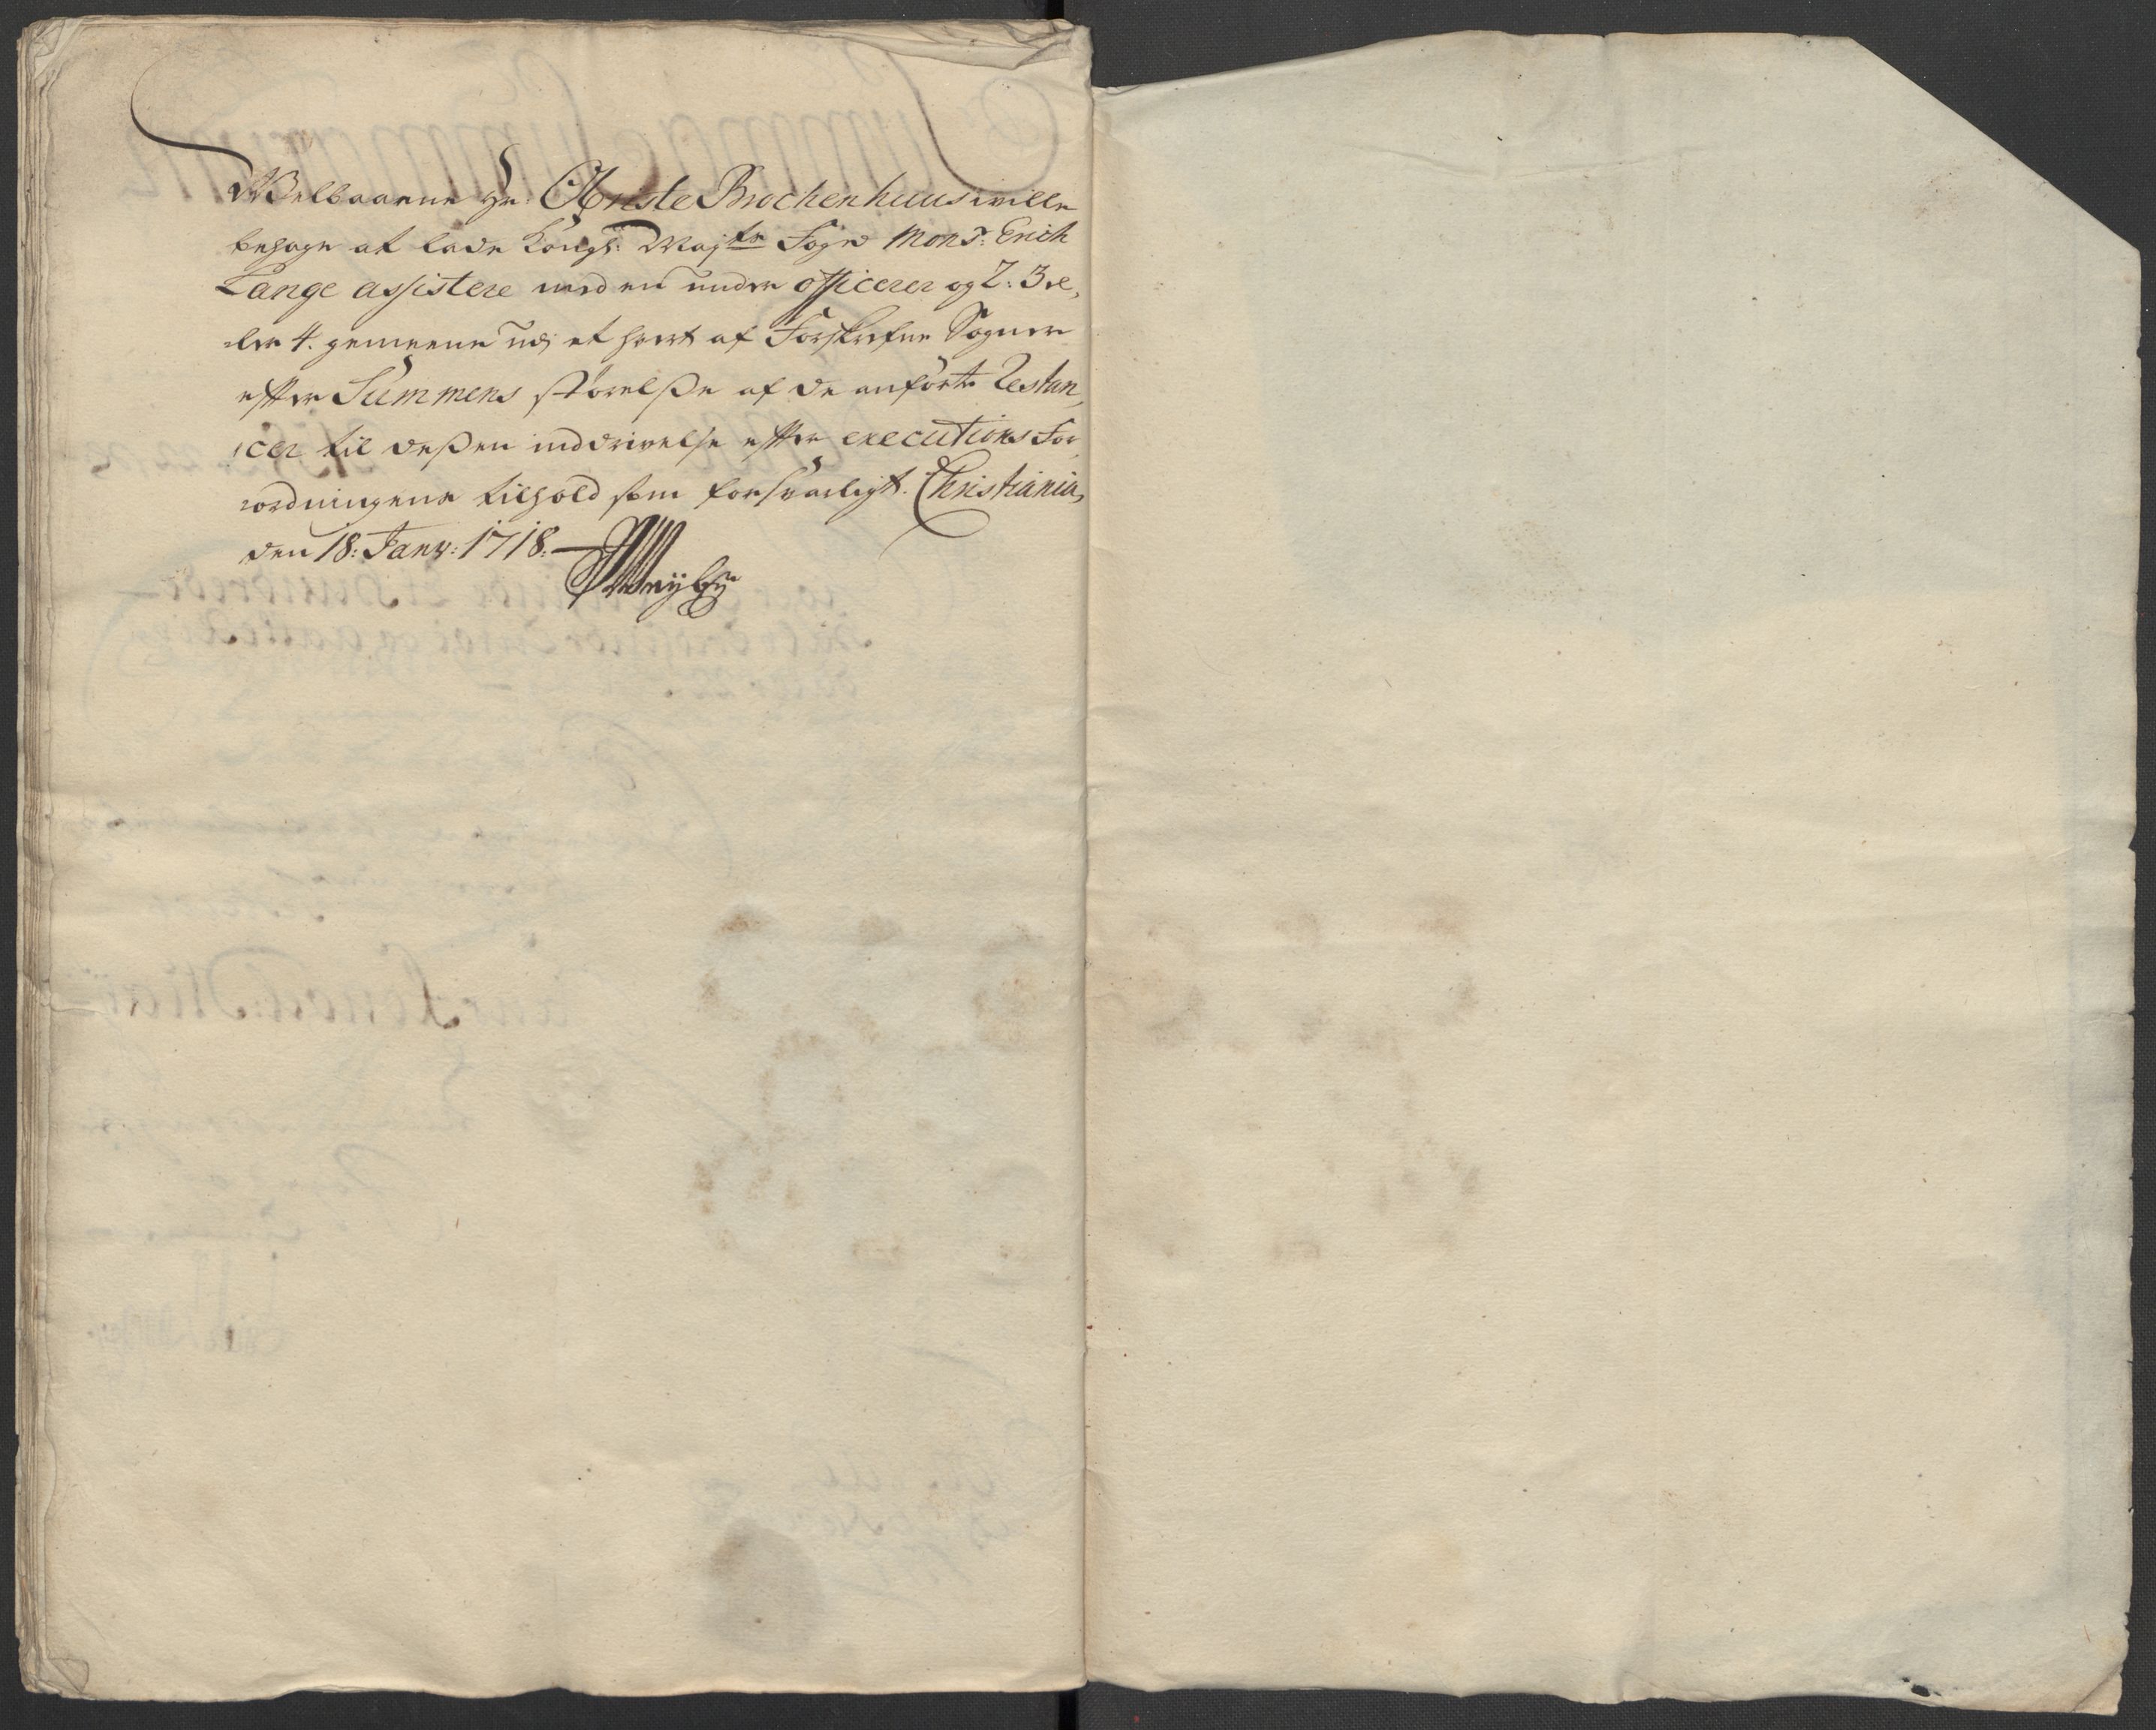 Welbaarne Hr: Obriste Brochenhuus wille
behage at lade Kongl: Maj.ts Foget Mons.r Erich
Lange assistere med en under officerer og 2: 3 el,
ler 4. gemeene udj et hvert af Forskrefne Sogner
efter Summens störelße af de anförte Restan,
cer til deßen inddrivelse efter executions For,
ordningens tilhold som forsvarligt. Christiania,
den 18: Janv: 1718.